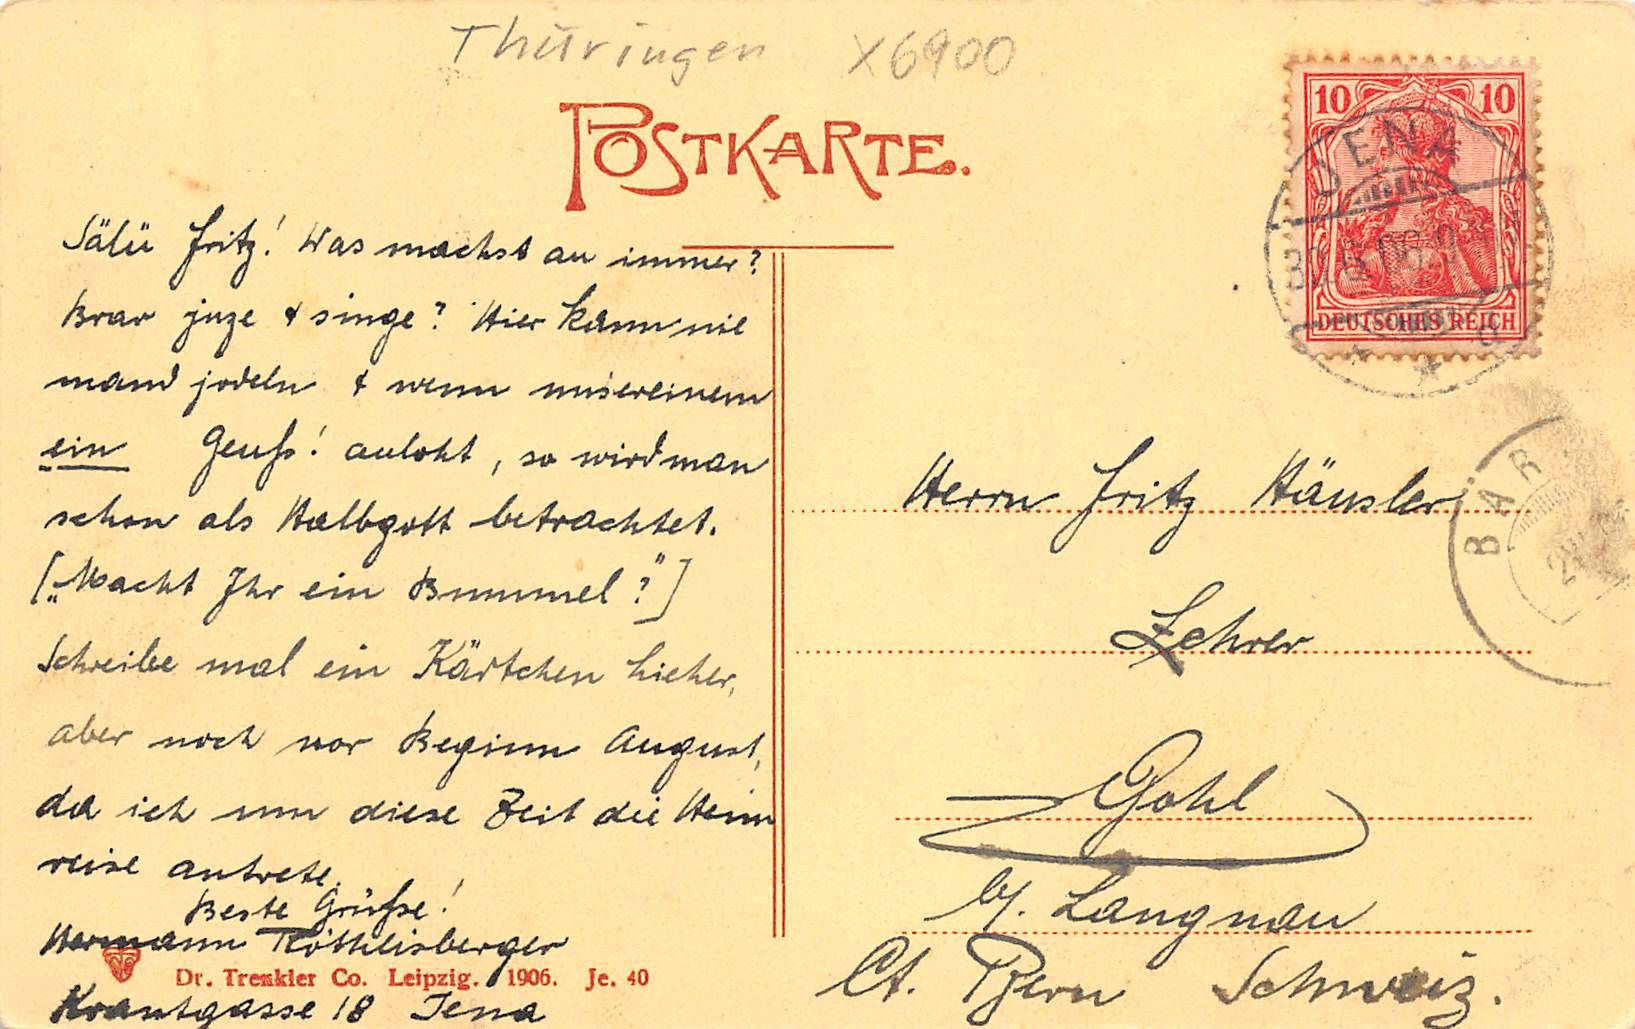 Thüringen X6900
POSTKARTE.
10 10
DEUTSCHES REICH
JENA
BÄR
Sälü Fritz! Was machst au immer?
Brav juze & singe? Hier kann nie
mand jodeln & wenn unsereinem
ein Geufs! auloht, so wird man
schon als Halbgott betrachtet.
[„Macht Ihr ein Bummel?"]
Schreibe mal ein Kärtchen hieher,
aber noch vor Beginn August,
da ich um diese Zeit die Heim
reise antrete.
Beste Grüße!
Hermann Röthlisberger
Dr. Trenkler Co. Leipzig. 1906. Je. 40
Krautgasse 18 Jena
Herrn Fritz Häusler
Lehrer
Gohl
b/. Langnau
Ct. Bern Schweiz.